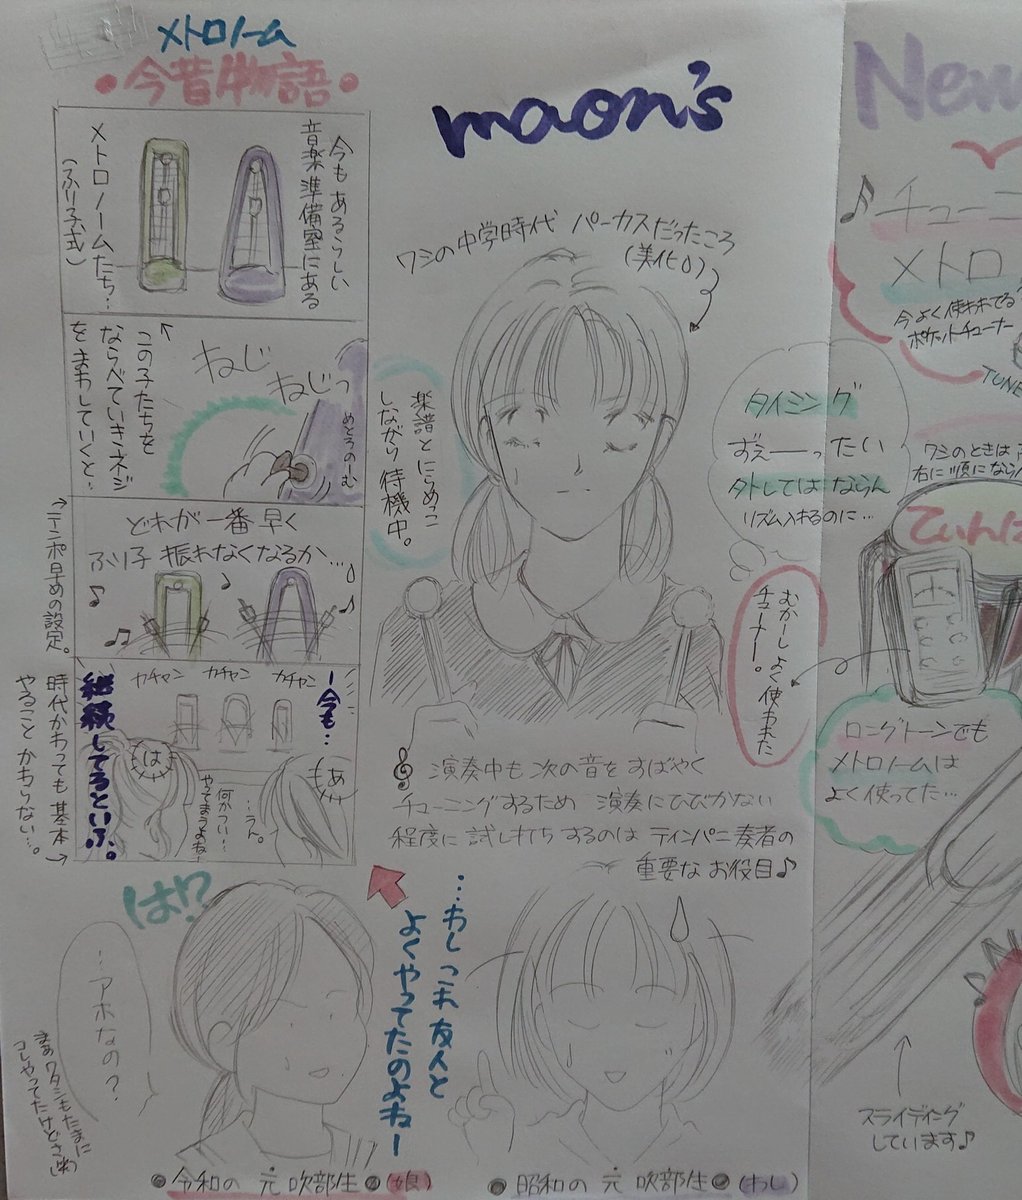 メトロノーム
●今昔物語●
今もあるらしい
音楽準備室にある
メトロノームたち…
(ふり子式)
この子たちを
ならべていきネジ
をまわしていくと…
ねじ
ねじっ
めとろのーむ
どれが一番早く
ふり子振れなくなるか…
↑テンポ早めの設定。
カチャン カチャン カチャン
ー今も…
継続してるといふ。
は
あ
何かつい…
やってまうよね…
…うん。
時代かわっても基本
やること かわらない…。
maon's
ワシの中学時代 パーカスだったころ
(美化0)
楽譜とにらめっこ
しながら待機中。
タイミング
ずえーーったい
外してはならん
リズム入れるのに…
むかーしよく使われた
チューナー。
演奏中も次の音をすばやく
チューニングするため 演奏にひびかない
程度に試し打ちするのはティンパニ奏者の
重要なお役目♪
…わしこれ友人と
よくやってたのよねー
は!?
…アホなの?
まぁワタシもたまに
コレやってたけどさ(笑)
●令和の元吹部生●(娘)
●昭和の元吹部生●(わし)
New
♪チューニ
メトロ
今よく使われてる
ポケットチューナー
TUNE
ワシのときは
右に順にならん
てぃんぱ
ロングトーンでも
メトロノームは
よく使ってた…
スライディング
しています♪